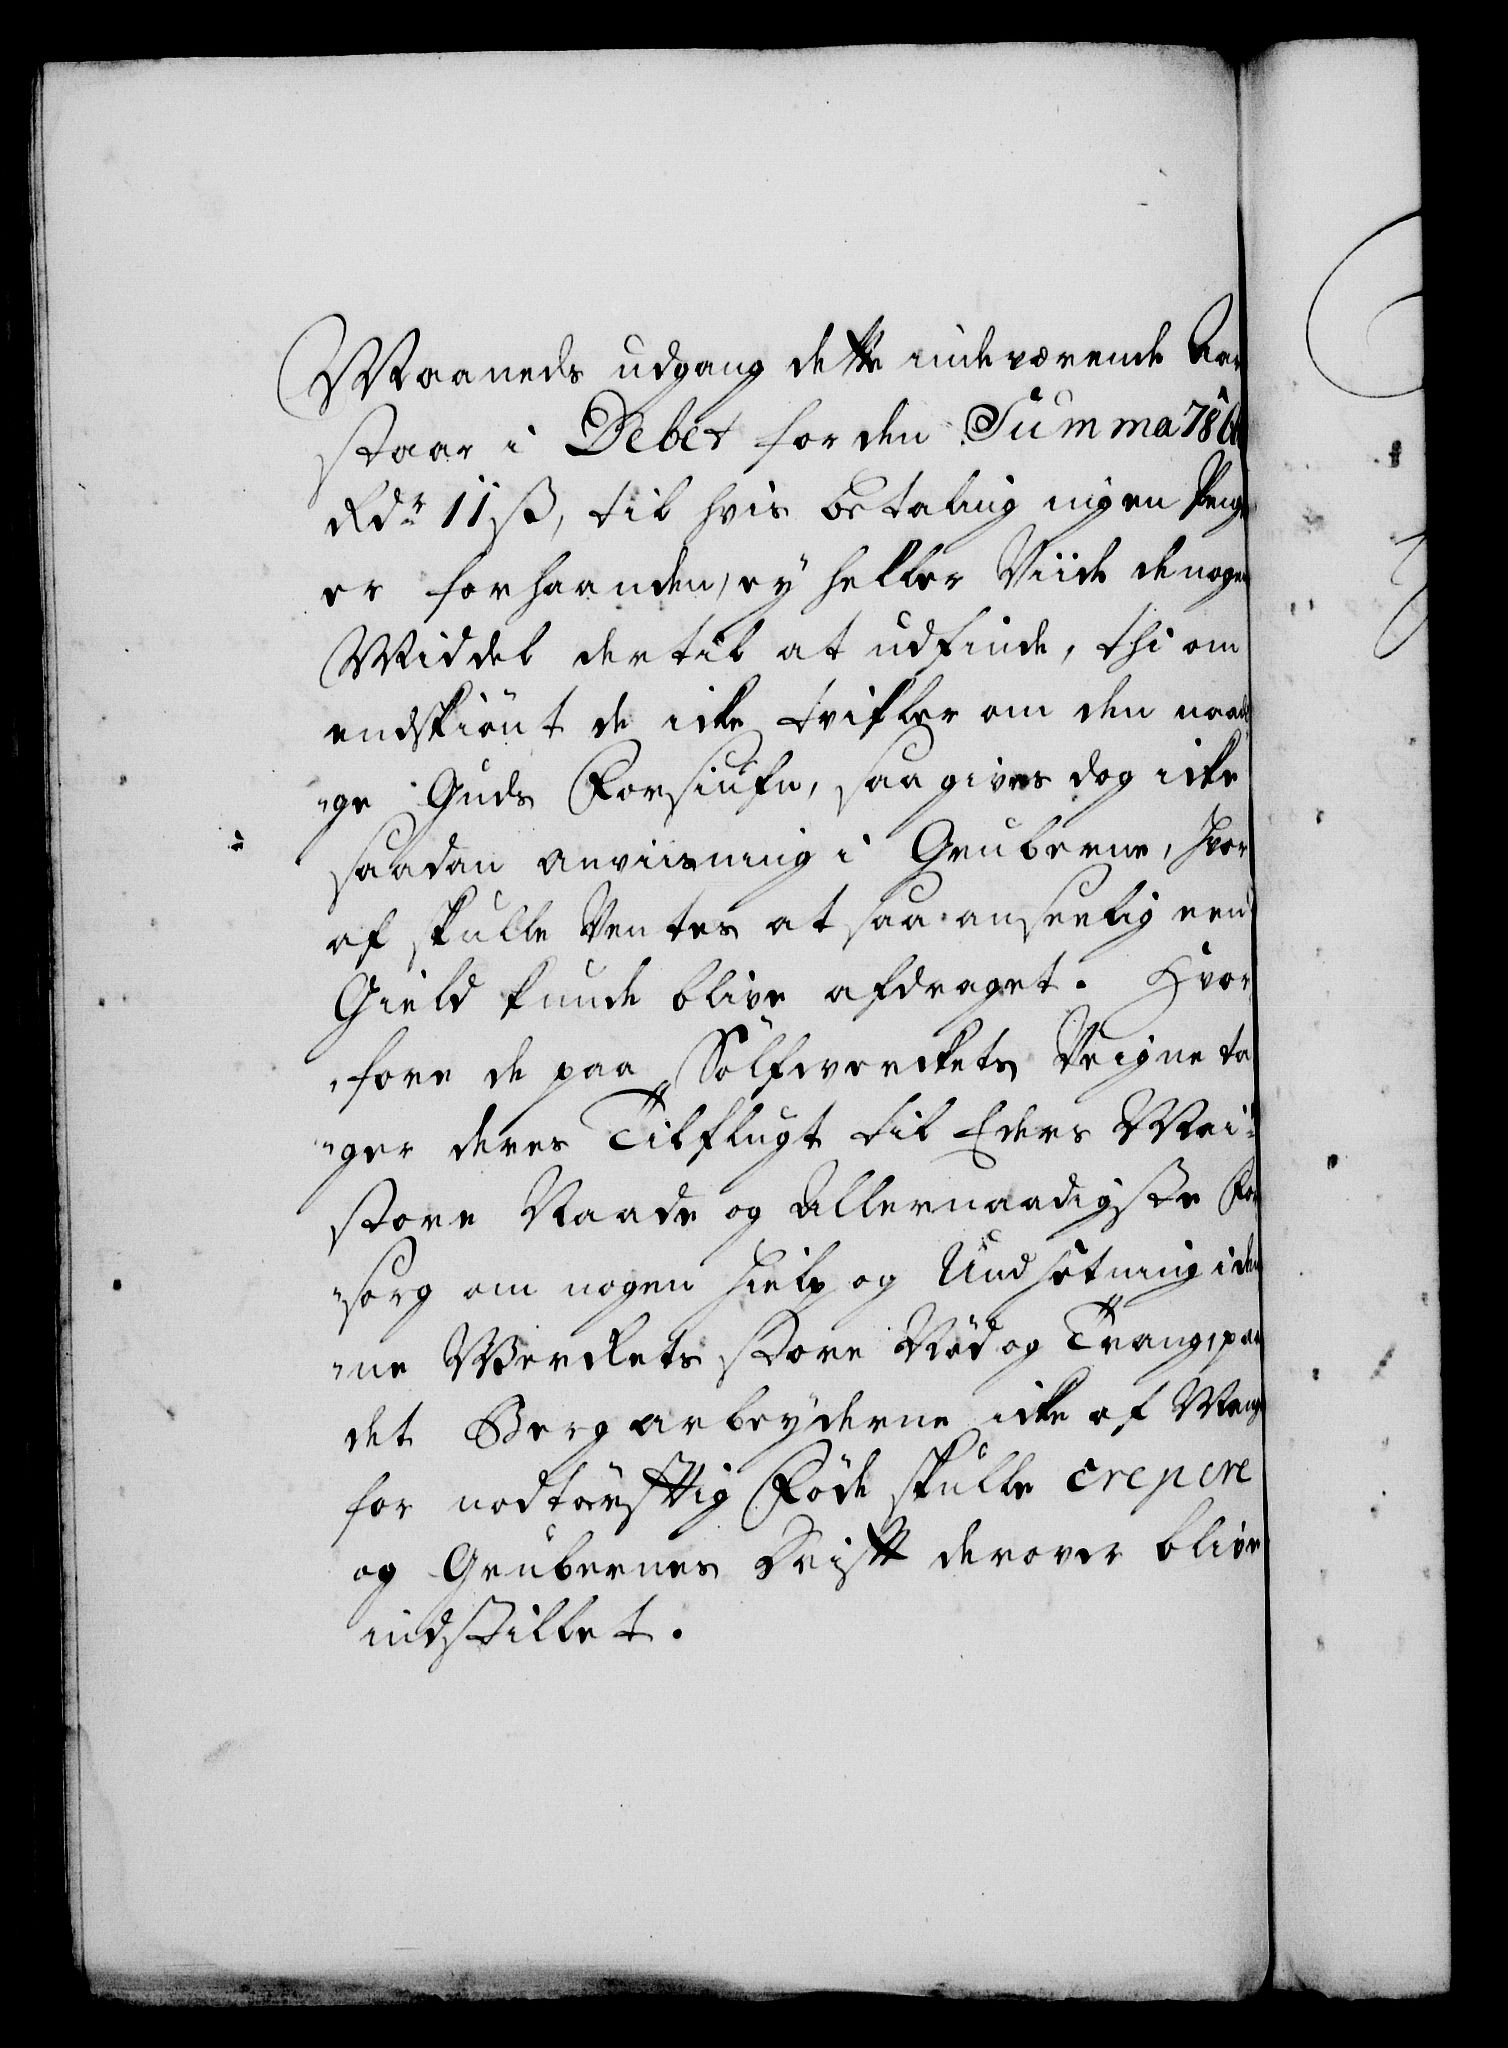 Maaneds udgang dette indeværende Aar
staar i Debet for den Summa
Rdr 11 ß, til hvis betaling ingen Penge
er forhaanden, ey heller Viide de nogen
Middel dertil at udfinde, thi om
endskiönt de icke tvifler om den naadi
"ge Guds Forsiufn, saa gives dog icke
saadan anviisning i Gruberne, hvor
af skulle Ventes at saa anseelig een
Gield kunde blive afdraget. Hvor
"fore de paa Sölfverckets Veigne ta
"ger deres Tilflugt til Eders May:
store Naade og Allernaadigste For
"sorg om nogen hielp og Undsætning i den
"ne Werckets store Nöd og Trang, paa
det Bergarbeyderne icke af Mang
for nodtörfftig Föde skulle crepere
og Grubernes Drifft derover blive
indstillet.